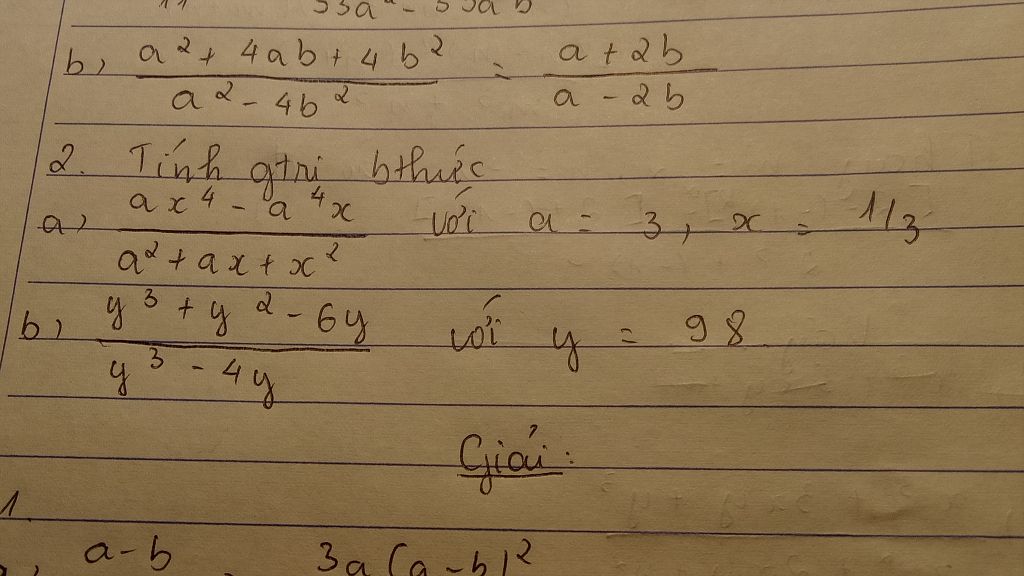 b, a² + 4ab + 4b² / a² - 4b² = a + 2b / a - 2b
2. Tính gtri bthức
a, ax⁴ - a⁴x / a² + ax + x² với a = 3, x = 1/3
b, y³ + y² - 6y / y³ - 4y với y = 98
Giải:
1.
a - b 3a(a - b)²